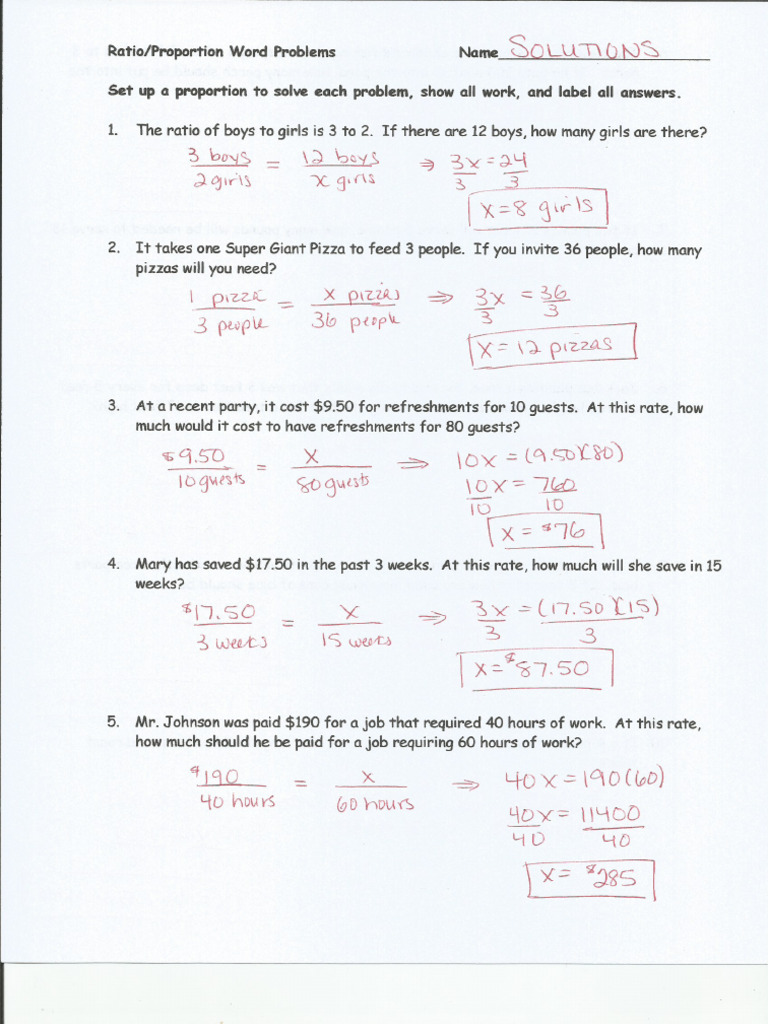 Ratio/Proportion Word Problems Name SOLUTIONS
Set up a proportion to solve each problem, show all work, and label all answers.
1. The ratio of boys to girls is 3 to 2. If there are 12 boys, how many girls are there?
3 boys = 12 boys ⇒ 3x = 24
2 girls x girls 3 3
x = 8 girls
2. It takes one Super Giant Pizza to feed 3 people. If you invite 36 people, how many
pizzas will you need?
1 pizza = x pizzas ⇒ 3x = 36
3 people 36 people 3 3
x = 12 pizzas
3. At a recent party, it cost $9.50 for refreshments for 10 guests. At this rate, how
much would it cost to have refreshments for 80 guests?
$9.50 = x ⇒ 10x = (9.50)(80)
10 guests 80 guests 10x = 760
10 10
x = $76
4. Mary has saved $17.50 in the past 3 weeks. At this rate, how much will she save in 15
weeks?
$17.50 = x ⇒ 3x = (17.50)(15)
3 weeks 15 weeks 3 3
x = $87.50
5. Mr. Johnson was paid $190 for a job that required 40 hours of work. At this rate,
how much should he be paid for a job requiring 60 hours of work?
$190 = x ⇒ 40x = 190(60)
40 hours 60 hours 40x = 11400
40 40
x = $285